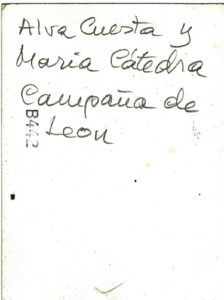 Alva Cuesta y
Maria Cátedra
Campaña de
Leon
B442